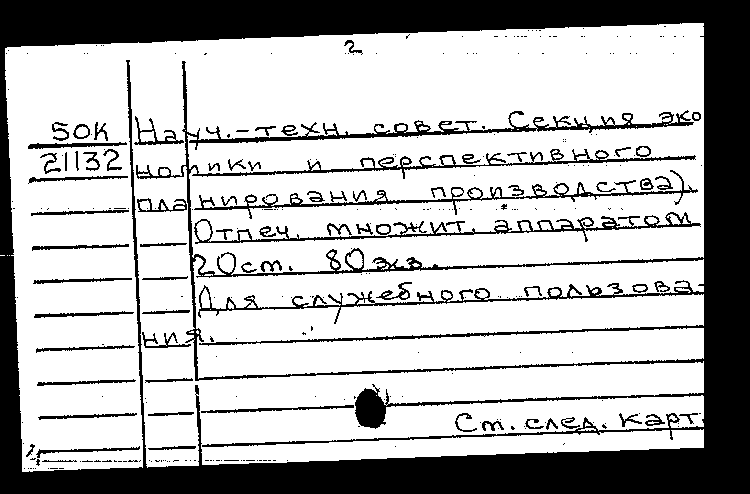 2
50К Науч.-техн. совет. Секция эко
21132 номики и перспективного
планирования производства).
Отпеч. множит. аппаратом
20 ст. 80 экз.
Для служебного пользова-
ния.
См. след. карт.